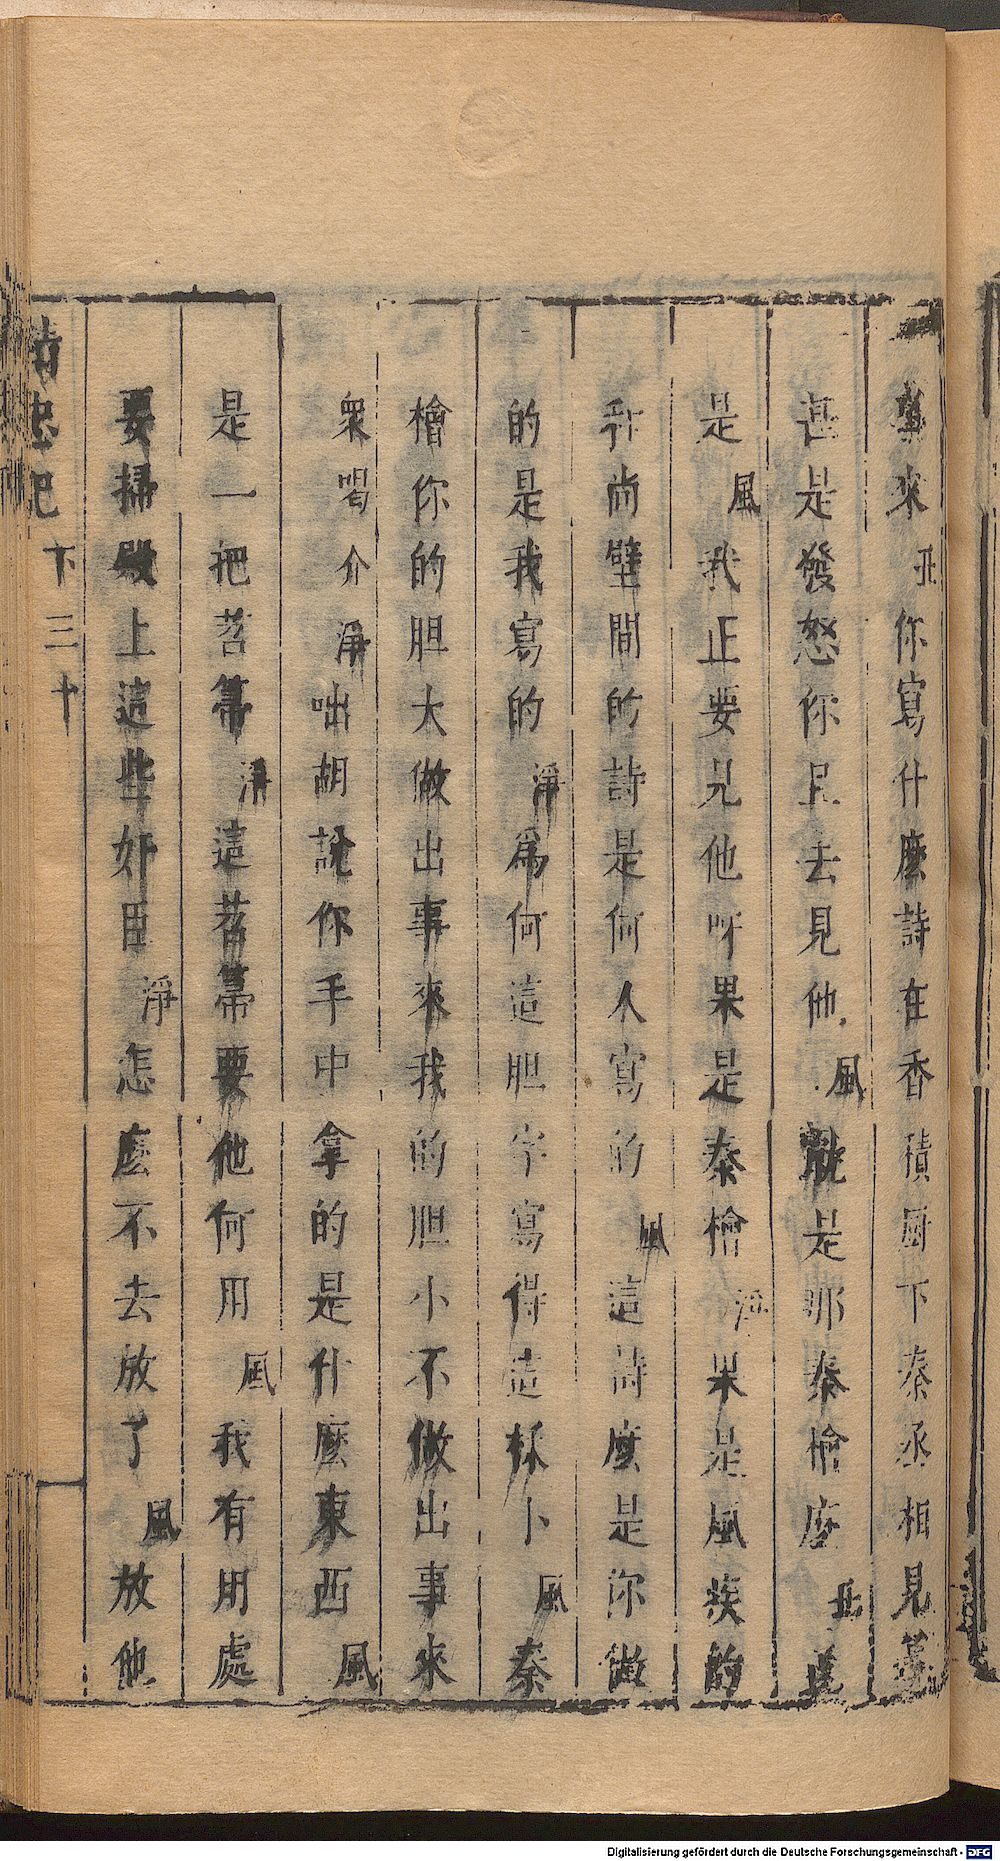 來 丑 你寫什麼詩在香積厨下秦丞相見
甚是發怒你且去見他 風 是那秦檜麼 丑
是 風 我正要見他呀果是秦檜 淨 果是風疾的
和尚壁間的詩是何人寫的 風 這詩麼是你做
的是我寫的 淨 為何這胆字寫得這 風 秦
檜你的胆大做出事來我的胆小不做出事來
衆喝介 淨 咄胡說你手中拿的是什麼東西 風
是一把苕箒 淨 這苕箒要他何用 風 我有用處
要掃殿上這些奸臣 淨 怎麼不去放了 風 放他
精忠記 下 三十
Digitalisierung gefördert durch die Deutsche Forschungsgemeinschaft - DFG